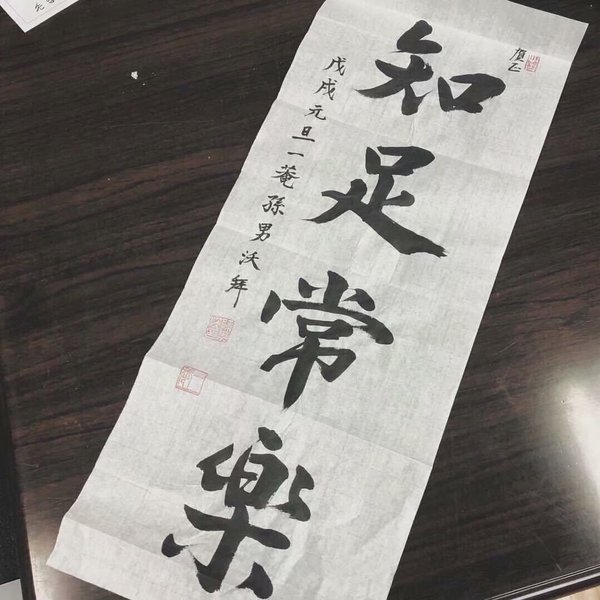 賀正
知足常樂
戊戌元旦一菴孫男沃拜